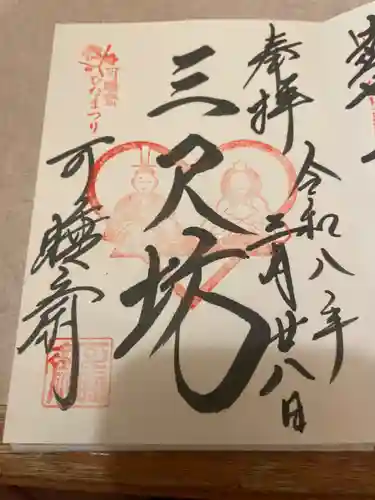 奉拝
令和八年
三月廿八日
三尺坊
可睡斎
ひなまつり